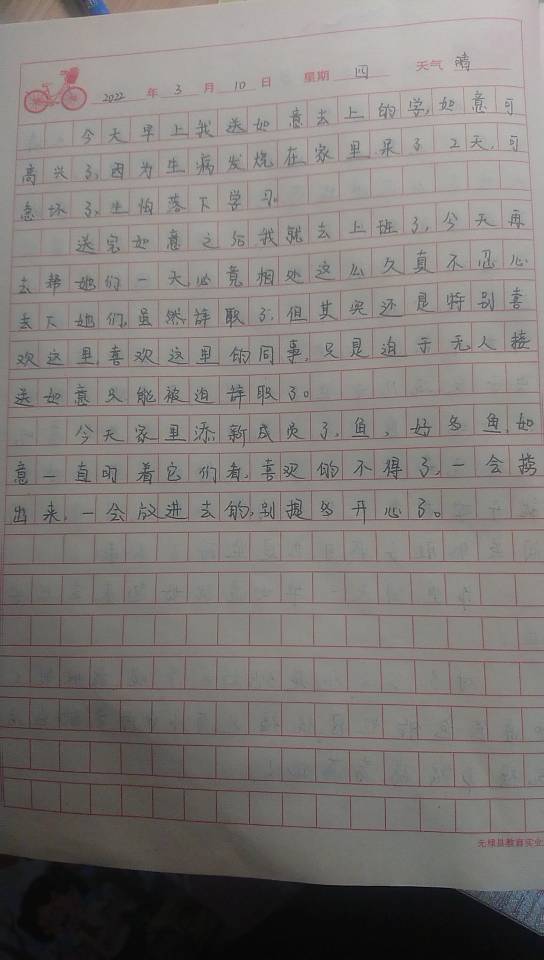 2022 年 3 月 10 日 星期 四 天气 晴
今天早上我送如意去上的学,如意可
高兴了,因为生病发烧在家里呆了2天,可
急坏了,生怕落下学习。
送完如意之后我就去上班了,今天再
去帮她们一天,必竟相处这么久真不忍心
去下她们,虽然辞取了,但其实还是特别喜
欢这里,喜欢这里的同事,只是迫于无人接
送如意只能被迫辞取了。
今天家里添新成员了,鱼,好多鱼,如
意一直盯着它们看,喜欢的不得了,一会捞
出来,一会放进去的,别提多开心了。
无棣县教育实业